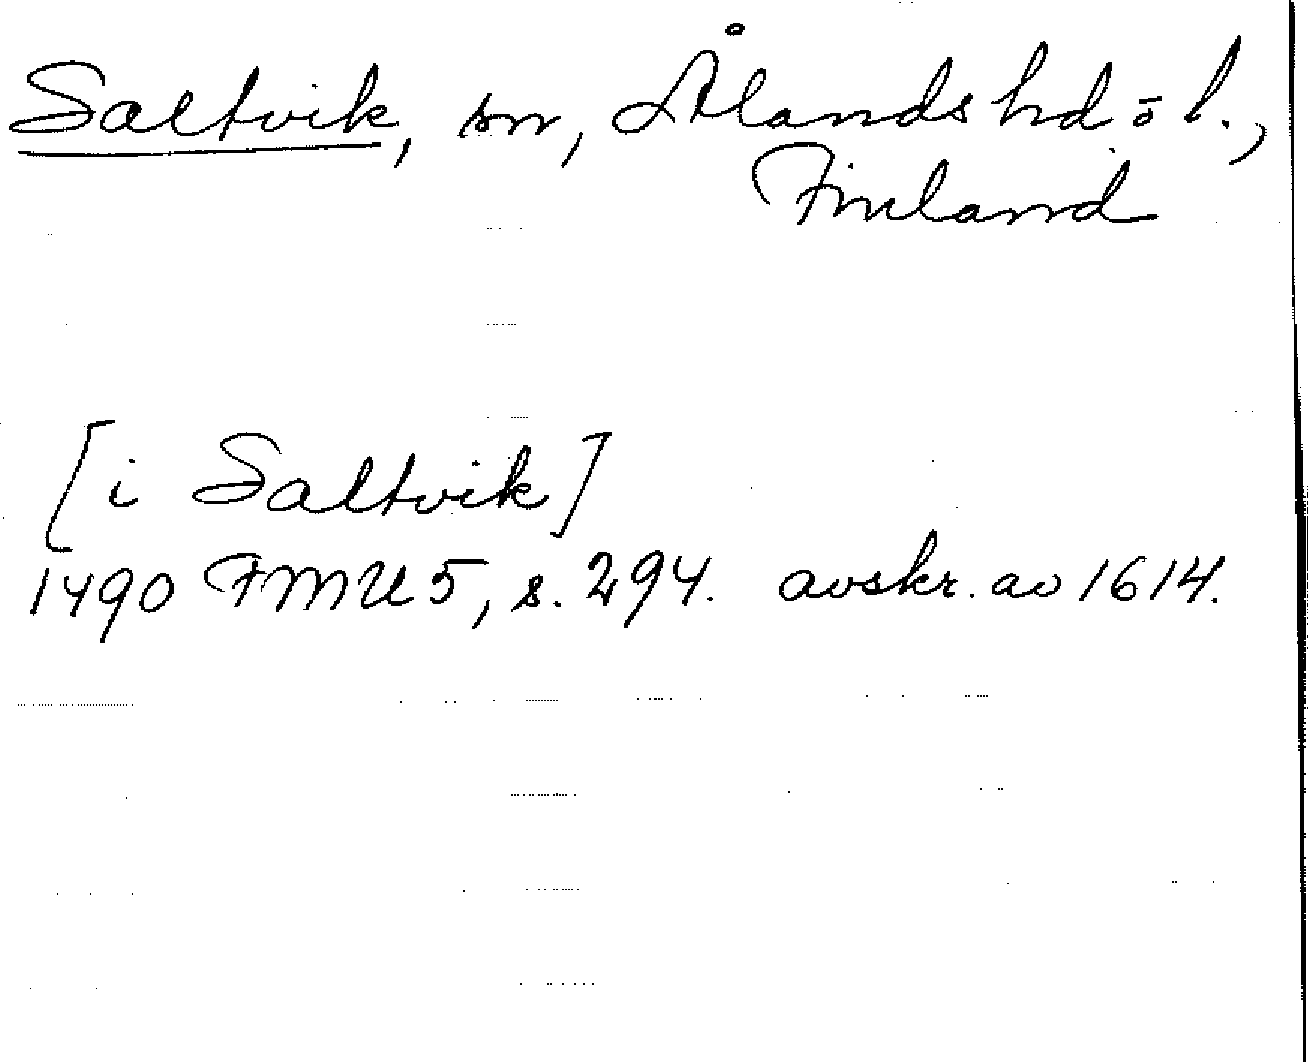 Saltvik, sn, Ålands hd o l.,
Finland
[i Saltvik]
1490 FMU 5, s. 294. avskr. av 1614.